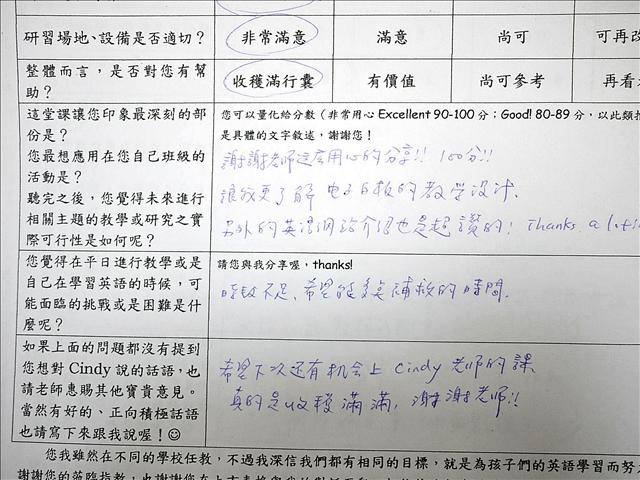 研習場地、設備是否適切？ 非常滿意 滿意 尚可 可再改
整體而言，是否對您有幫助？ 收穫滿行囊 有價值 尚可參考 再看
這堂課讓您印象最深刻的部
份是？
您最想應用在您自己班級的
活動是？
聽完之後，您覺得未來進行
相關主題的教學或研究之實
際可行性是如何呢？
您可以量化給分數（非常用心 Excellent 90-100 分；Good! 80-89 分，以此類推
是具體的文字敘述，謝謝您！
謝謝老師這麼用心的分享!! 100分!!
讓我更了解 電子白板的教學設計.
另外的英語網站介紹也是超讚的! Thanks a lot!
您覺得在平日進行教學或是
自己在學習英語的時候，可
能面臨的挑戰或是困難是什
麼呢？
請您與我分享喔，thanks!
時數不足、希望能多 補救的時間.
如果上面的問題都沒有提到
您想對 Cindy 說的話語，也
請老師惠賜其他寶貴意見。
當然有好的、正向積極話語
也請寫下來跟我說喔！☺
希望下次還有机会上 Cindy 老師的課
真的是收穫滿滿, 謝謝老師!!
您我雖然在不同的學校任教，不過我深信我們都有相同的目標，就是為孩子們的英語學習而努